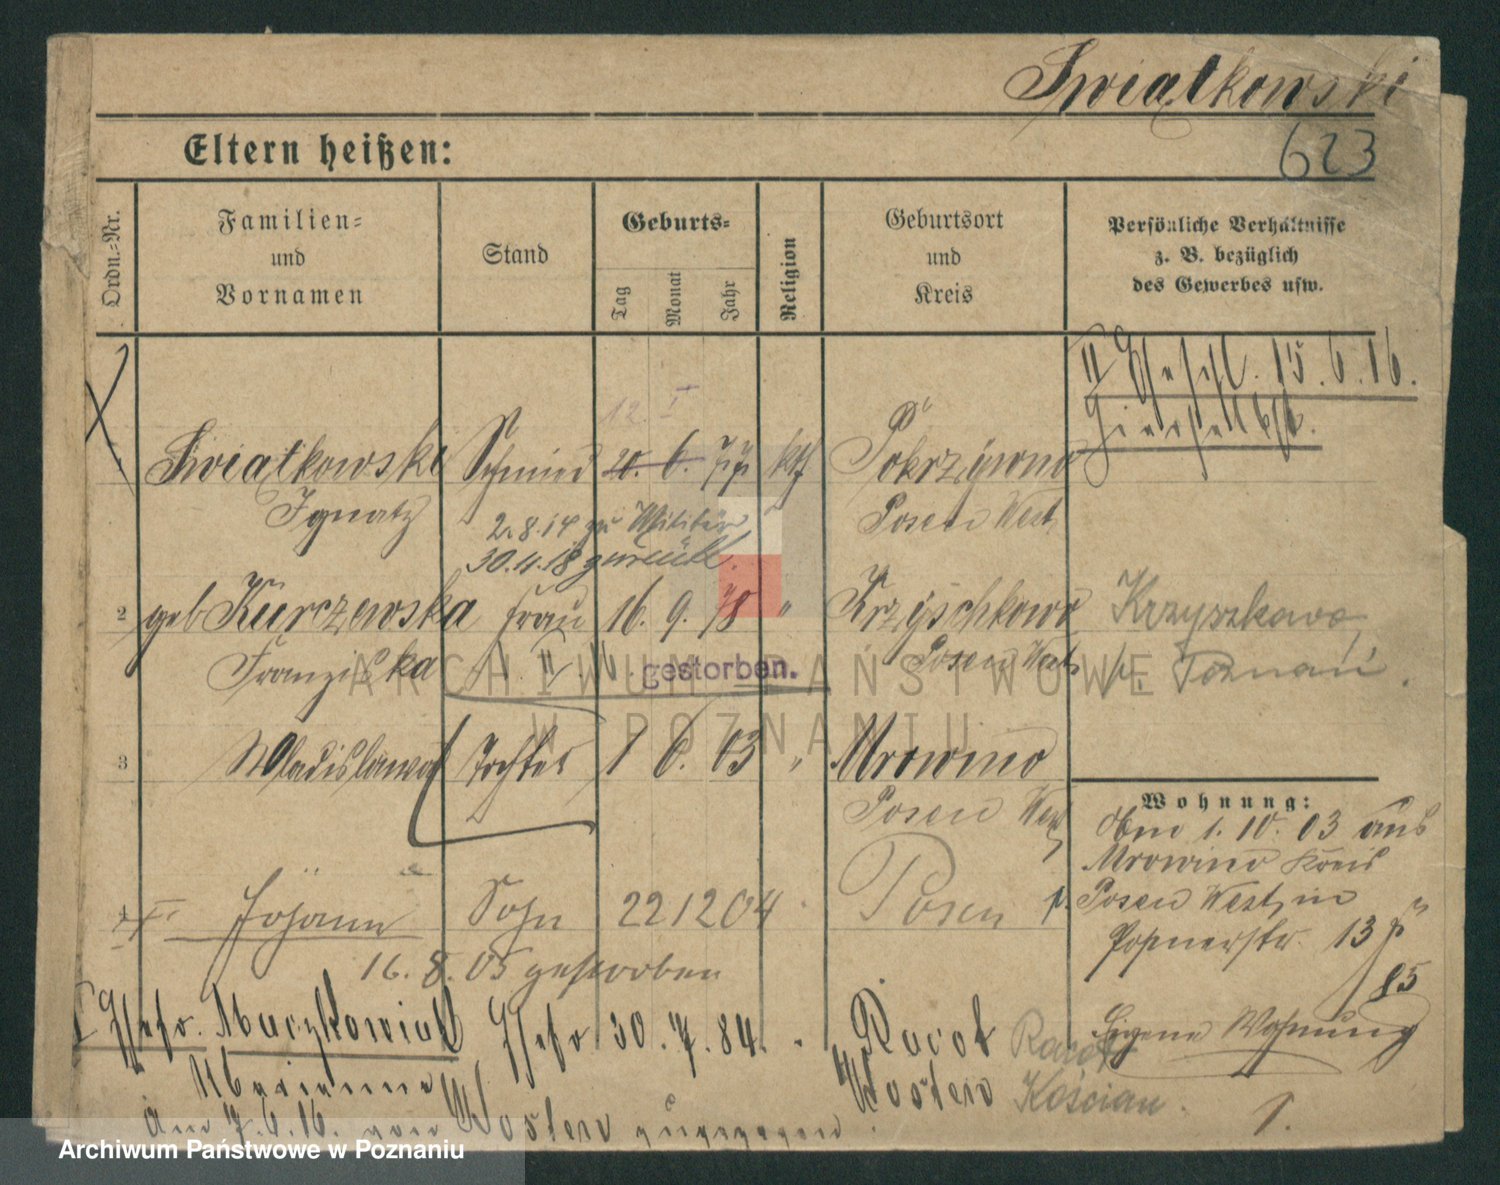 Świątkowski
623
Eltern heißen:
Ordn.=Nr.
Familien=
und
Vornamen
Stand
Geburts=
Tag
Monat
Jahr
Religion
Geburtsort
und
Kreis
Persönliche Verhältnisse
z. B. bezüglich
des Gewerbes usw.
15.6.16.
12. I
Świątkowski Schmied 20. 6. 77 kth Pokrzywno
Ignatz Posen West
2.8.14 zu Militär
30.11.18 zurück.
2 geb Kurczewska Frau 16. 9. 78 " Krzyschkowo Krzyszkowo
Franziska gestorben. Posen West p. Poznań.
3 Wladislawa Tochter 1 6. 03 " Mrowino
Posen West
Wohnung:
1. 10. 03 aus
Mrowino Kreis
Posen West in
Posenerstr. 13
85
Eigene Wohnung
4 Johann Sohn 22 12 04 Posen
16. 8. 05 gestorben
Ehefr. Maczkowiak Ehefr 30. 7. 84. Racot Racot
Marianna Kosten Kościan.
Am 7.6.16. von Kosten zugezogen.
ARCHIWUM PAŃSTWOWE
W POZNANIU
Archiwum Państwowe w Poznaniu